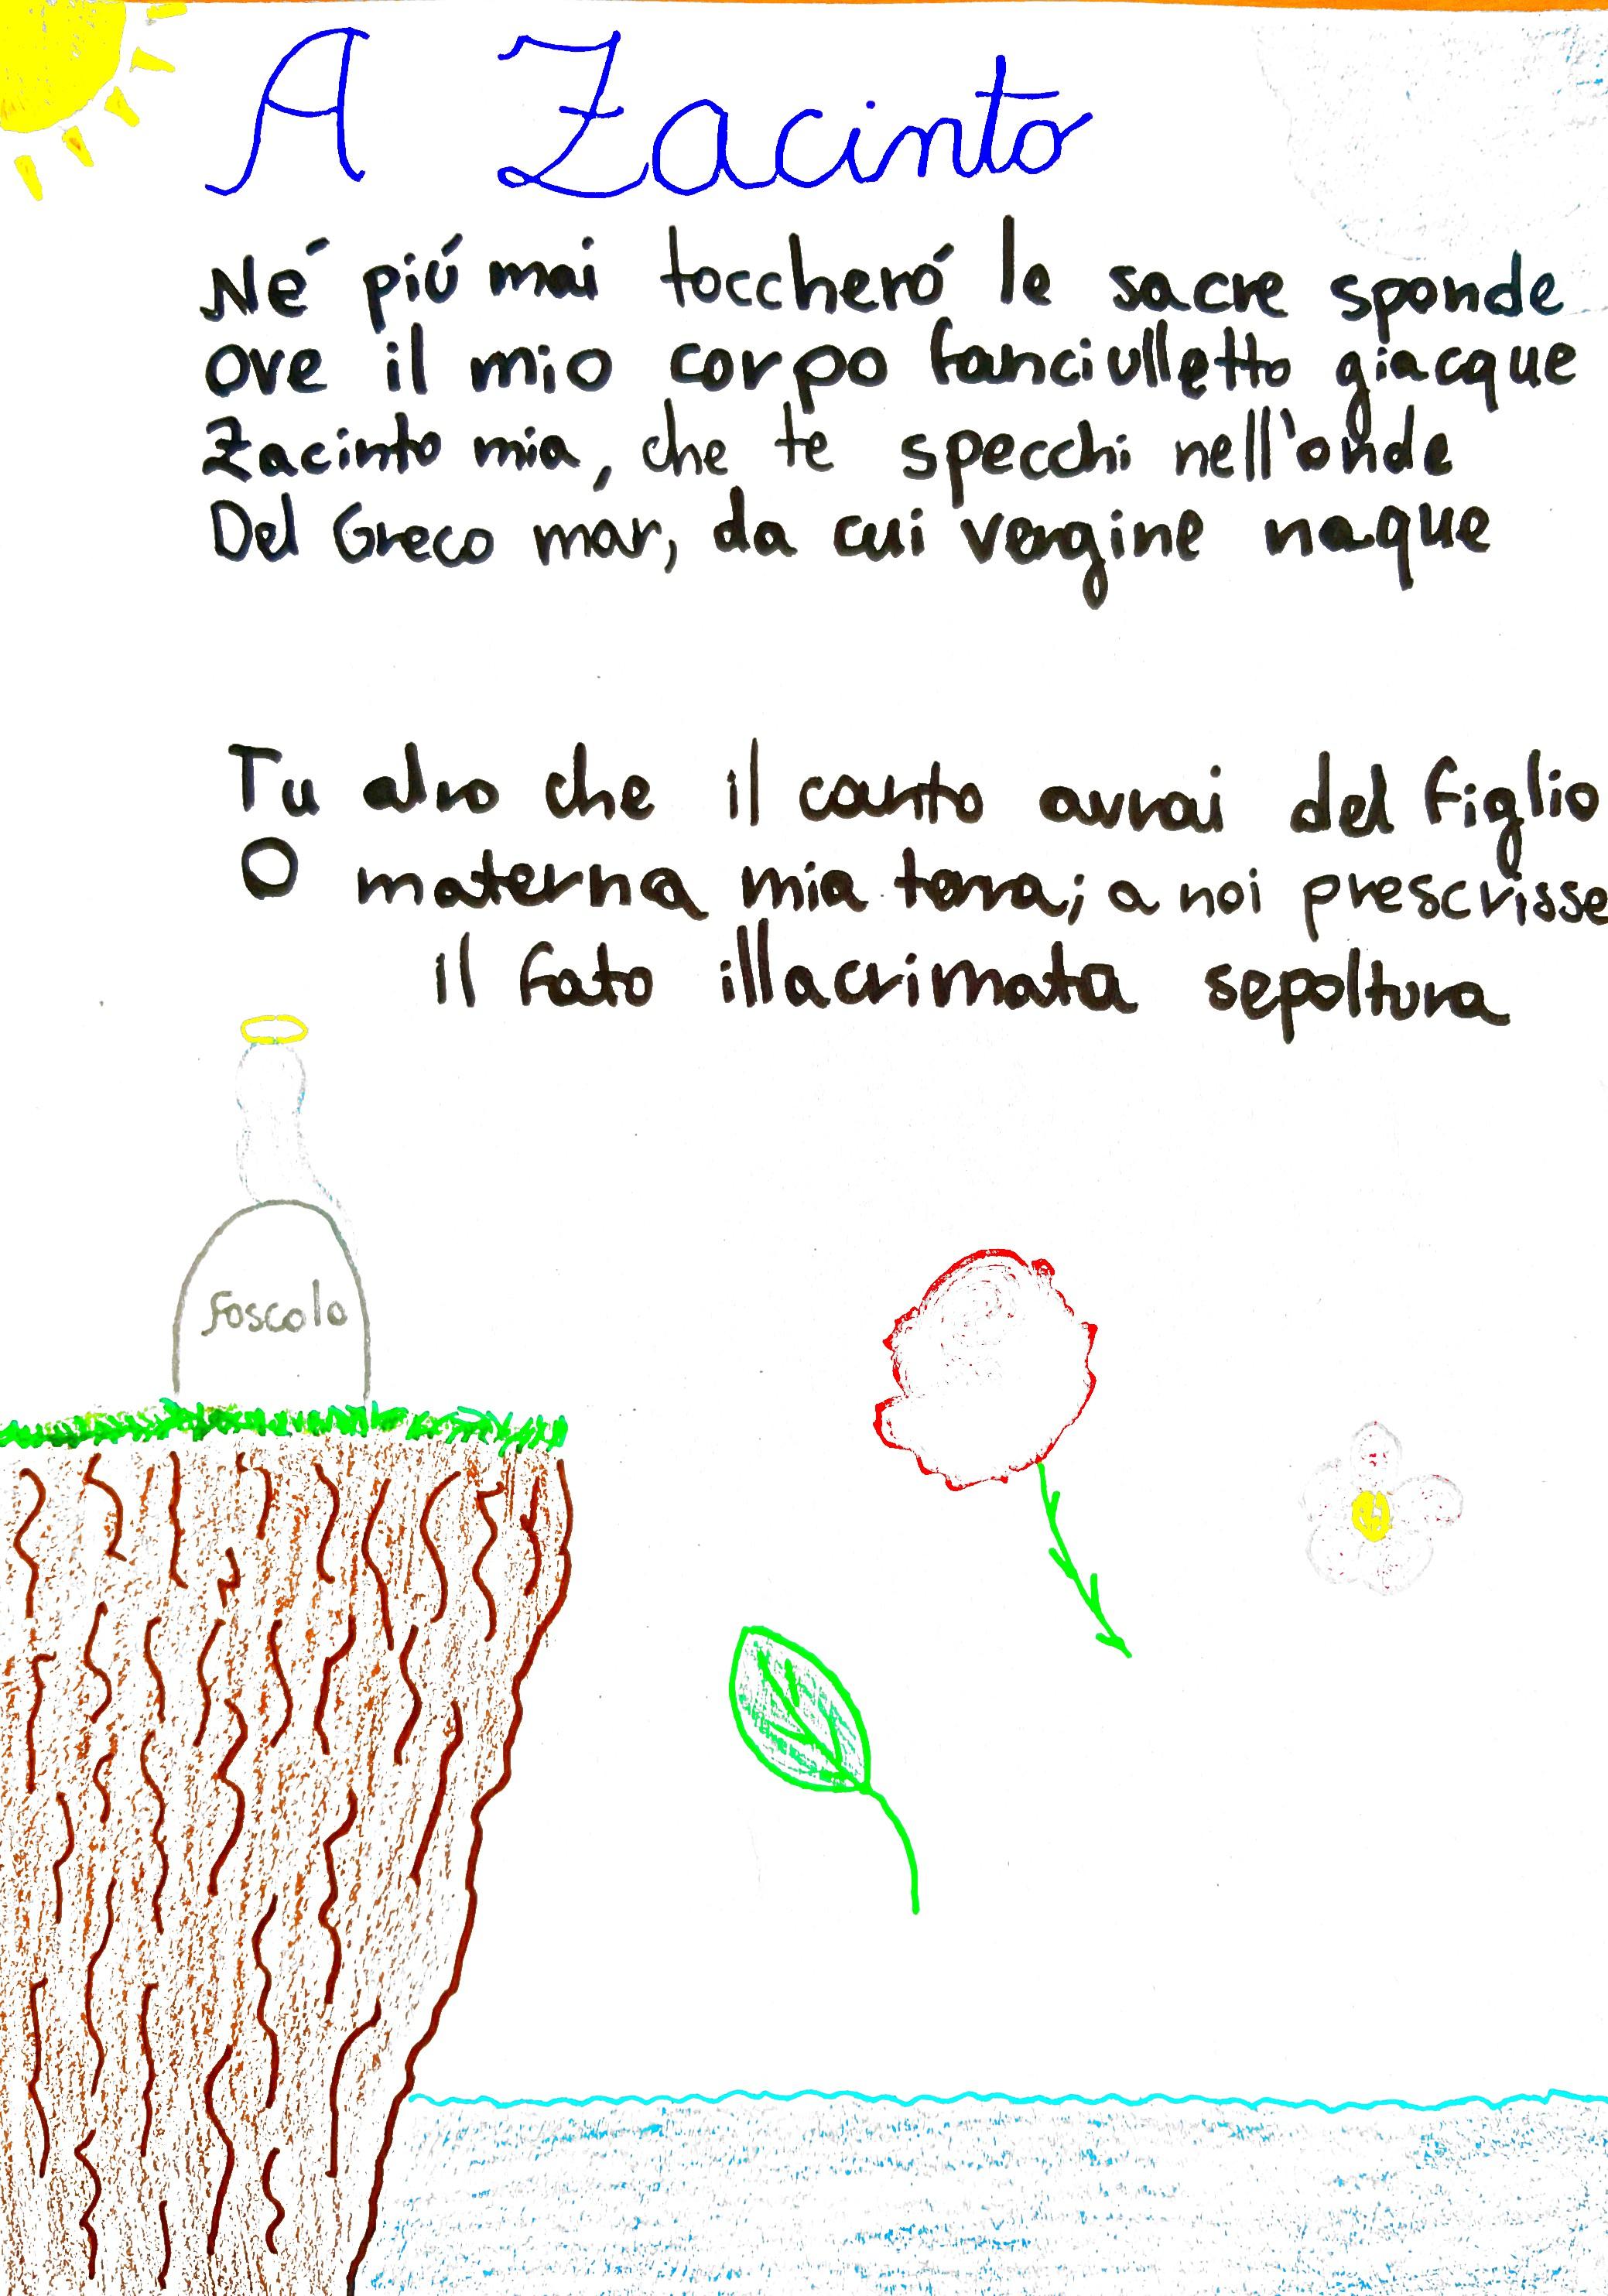 A Zacinto
Né piú mai toccheró le sacre sponde
ove il mio corpo fanciulletto giacque
Zacinto mia, che te specchi nell'onde
Del Greco mar, da cui vergine naque
Tu altro che il canto avrai del figlio
O materna mia terra; a noi prescrisse
il fato illacrimata sepoltura
Foscolo